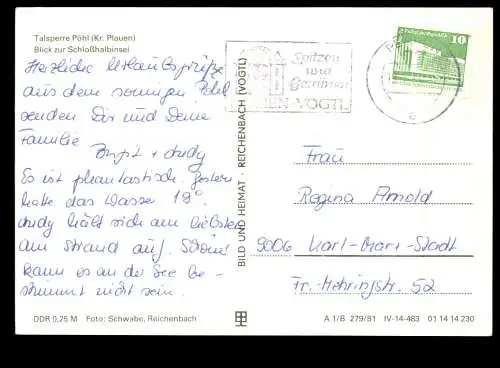 Talsperre Pöhl (Kr. Plauen)
Blick zur Schloßhalbinsel
Herzliche Urlaubsgrüße
aus dem sonnigen Pöhl
senden Dir und Deine
Familie
+ Andy
Es ist phantastisch. Gestern
hatte das Wasser 18°.
Andy hält sich am liebsten
am Strand auf. Schöner
kann es an der See be-
stimmt nicht sein.
DDR 0,25 M Foto: Schwabe, Reichenbach
BILD UND HEIMAT · REICHENBACH (VOGTL)
Spitzen
und
Gardinen
VOGTL
10
Frau
Regina Arnold
9006 Karl-Marx-Stadt
Fr.-Mehringstr. 52
A 1/B 279/81 IV-14-483 01 14 14 230